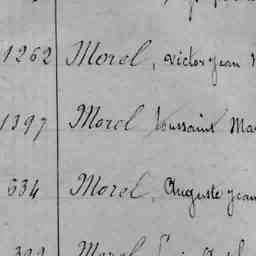 1262 Morel, Victor Jean
1397 Morel Toussaint Ma
634 Morel, Auguste Jean
Morel